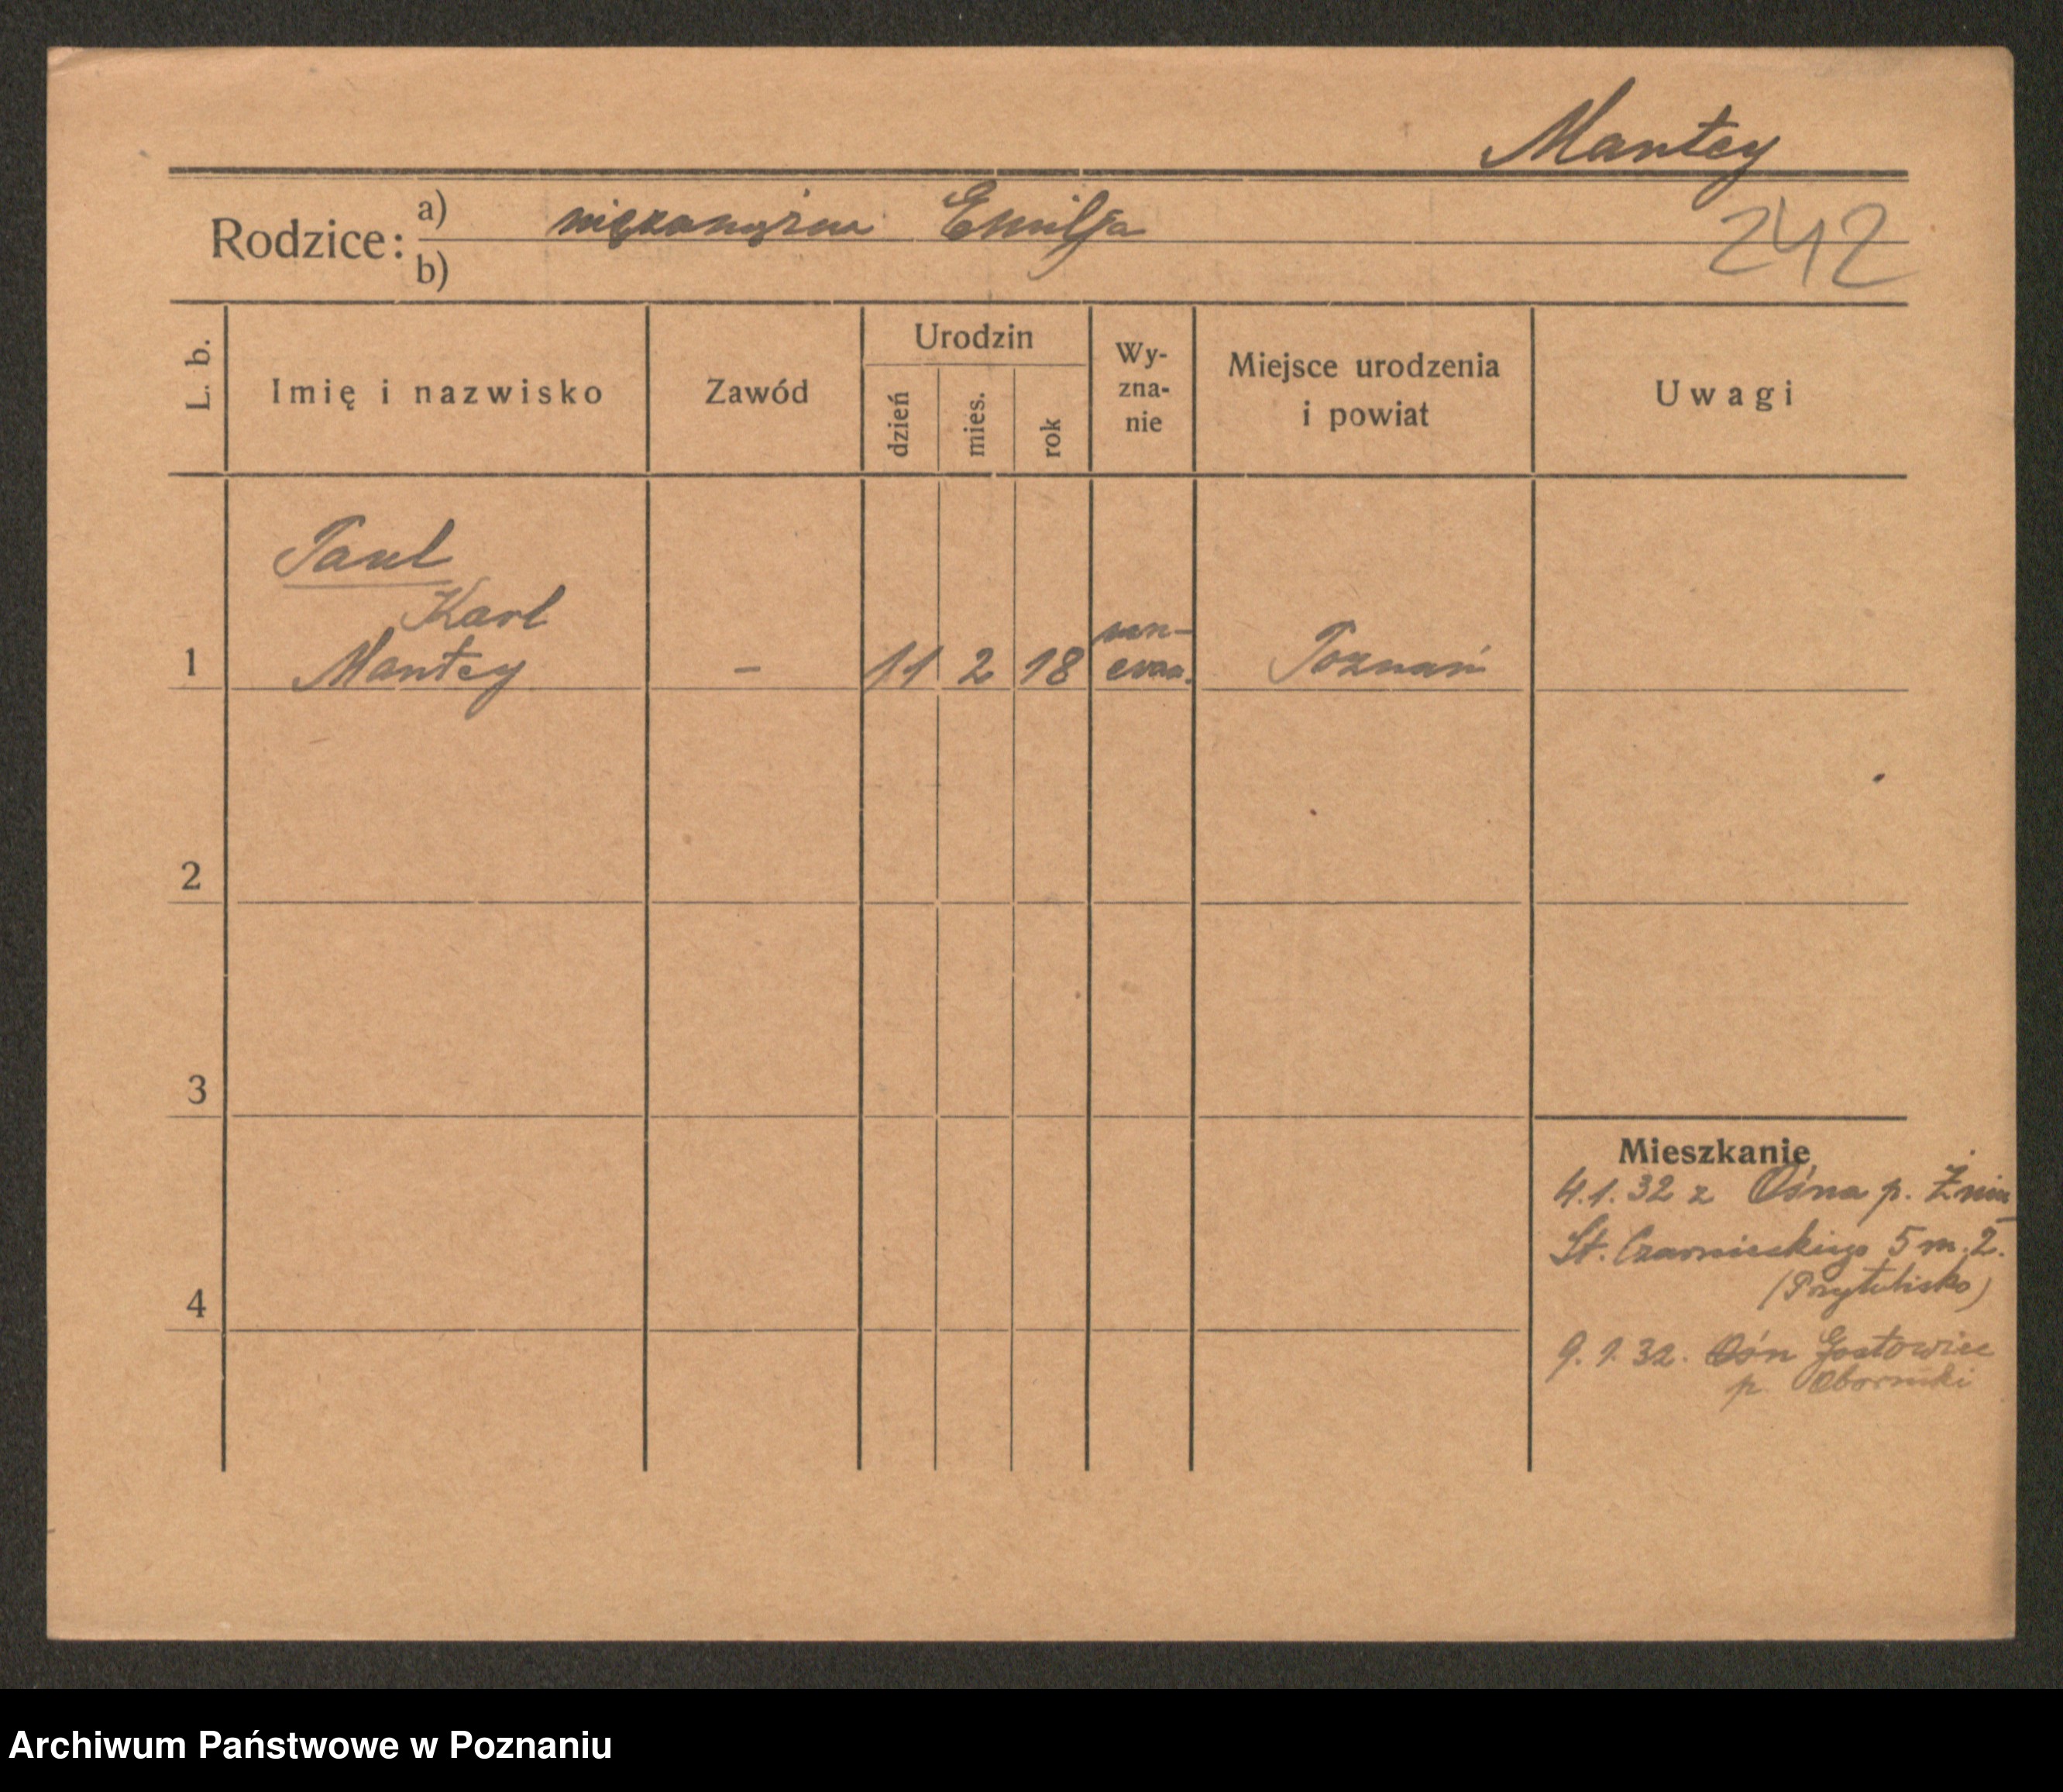 Mantey
Rodzice: a) niezamężna Emilja
b)
242
L. b.
Imię i nazwisko
Zawód
Urodzin
dzień
mies.
rok
Wy-
zna-
nie
Miejsce urodzenia
i powiat
Uwagi
Paul
Karl
1 Mantey - 11 2 18 ewan. Poznań
2
3
4
Mieszkanie
4.1.32 z Ośna p. Żnin
St. Czarnieckiego 5 m. 2.
(Przytulisko)
9.1.32. Gostowiec
p. Oborniki
Archiwum Państwowe w Poznaniu